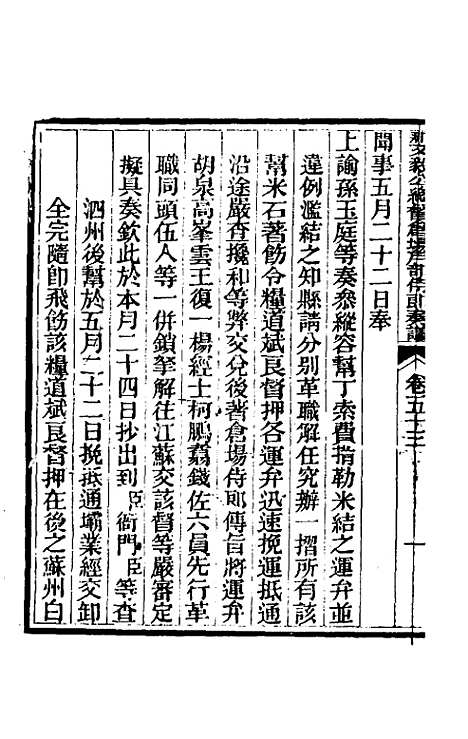 卷五十三
一
聞事五月二十二日奉
上諭孫玉庭等奏叅縱容幫丁索費掯勒米結之運弁並
違例濫結之知縣請分別革職解任究辦一摺所有該
幫米石著飭令糧道斌良督押運弁迅速挽運抵通
沿途嚴查攙和等弊交兌後著倉場侍郎傳旨將運弁
胡泉高峯雲王復一楊經士柯鵬翥錢佐六員先行革
職同頭伍人等一併鎖拏解往江蘇交該督等嚴審定
擬具奏欽此於本月二十四日抄出到臣衙門臣等查
泗州後幫於五月二十二日挽抵通壩業經交卸
全完隨卽飛飭該糧道斌良督押在後之蘇州白